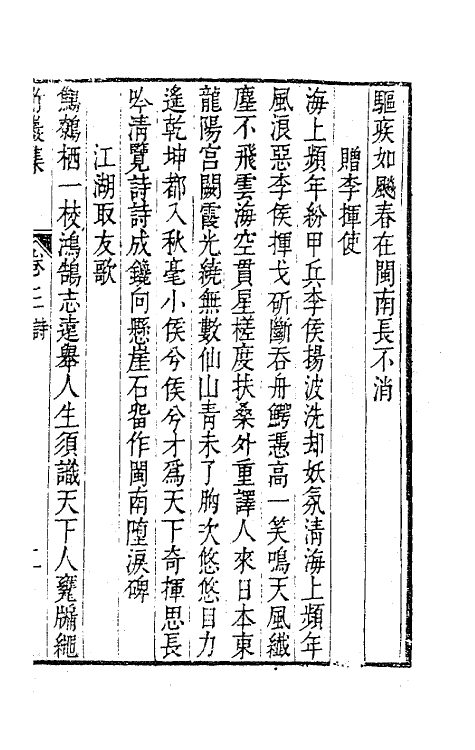 驅疾如飈春在閩南長不消
贈李揮使
海上頻年紛甲兵李侯揚波洗却妖氛淸海上頻年
風浪惡李侯揮戈斫斷吞舟鰐憑高一笑鳴天風纖
塵不飛雲海空貫星槎度扶桑外重譯人來日本東
龍陽宮闕霞光繞無數仙山靑未了胸次悠悠目力
遙乾坤都入秋毫小侯兮侯兮才爲天下奇揮思長
吟淸覽詩詩成鐫向懸崖石畱作閩南墮淚碑
江湖取友歌
鷦鷯栖一枝鴻鵠志遠舉人生須識天下人甕牖繩
集 卷二 詩 二